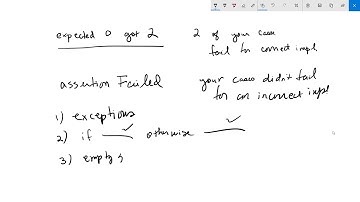 expected 0 got 2
2 of your cases
fail for correct impl.
assertion Failed
your cases didn't fail
for an incorrect impl
1) exceptions
2) if ___ otherwise ___
3) empty s